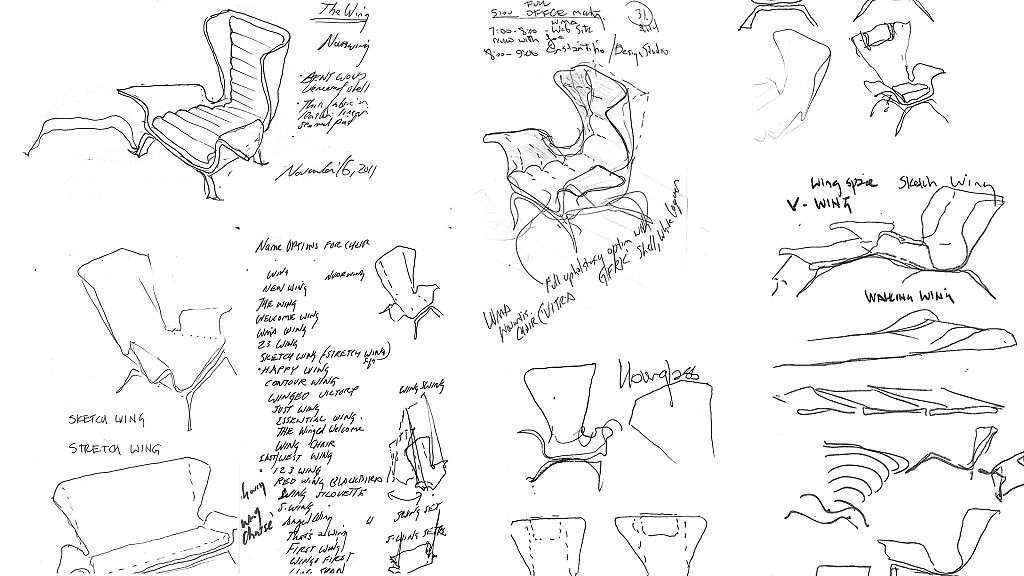 The Wing
Norrwing
• BENT WOOD
Veneered shell
• Thin fabric in
seamed pad
November 6, 2011
FULL
5:00 OFFICE
7:00-8:00 - Web Site
8:00 - 9:00 Constantin / Design Studio
31
Full upholstery option with
GFRK shell, white
WMA
CHAIR (VITRA
SKETCH WING
STRETCH WING
Name OPTIONS FOR CHAIR
WING
NEW WING
THE WING
WELCOME WING
WMA WING
23 WING
SKETCH WING (STRETCH WING)
• HAPPY WING
CONTOUR WING
WINGED VICTORY
JUST WING
ESSENTIAL WING
THE Winged Welcome
WING CHAIR
EAST/WEST WING
• 123 WING
RED WING BLACKBIRD
WING SILOUETTE
S-WING
Angel Wing
That's a wing
FIRST WING
WINGS FIRST
WING SPAN
Wing
Chaise
WING SWING
SWING SET
S-WING SETTEE
Hourglass
Wing spire Sketch Wing
V-WING
WALKING WING